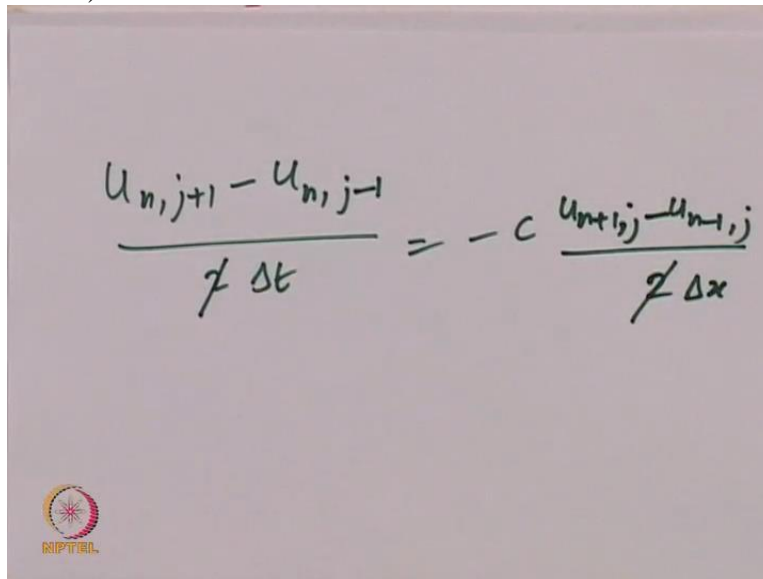 u_{n,j+1} - u_{n,j-1} / 2 Δt = - c u_{n+1,j} - u_{n-1,j} / 2 Δx
NPTEL